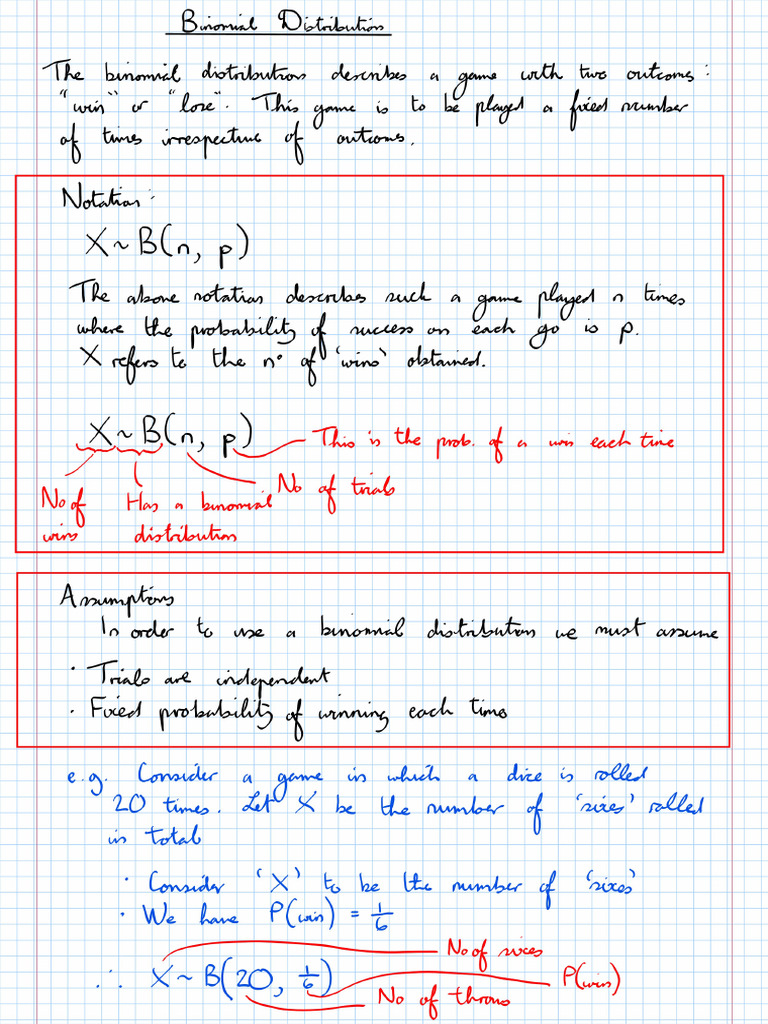 Binomial Distribution
The binomial distribution describes a game with two outcomes:
"win" or "lose". This game is to be played a fixed number
of times irrespective of outcome.
Notation:
X~B(n, p)
The above notation describes such a game played n times
where the probability of success on each go is p.
X refers to the nº of 'wins' obtained.
X~B(n, p)
This is the prob. of a win each time
No of trials
No of wins
Has a binomial distribution
Assumptions
In order to use a binomial distribution we must assume
· Trials are independent
· Fixed probability of winning each time
e.g. Consider a game in which a dice is rolled
20 times. Let X be the number of 'sixes' rolled
in total
· Consider 'X' to be the number of 'sixes'
· We have P(win) = 1/6
No of sixes
∴ X~B(20, 1/6)
P(win)
No of throws